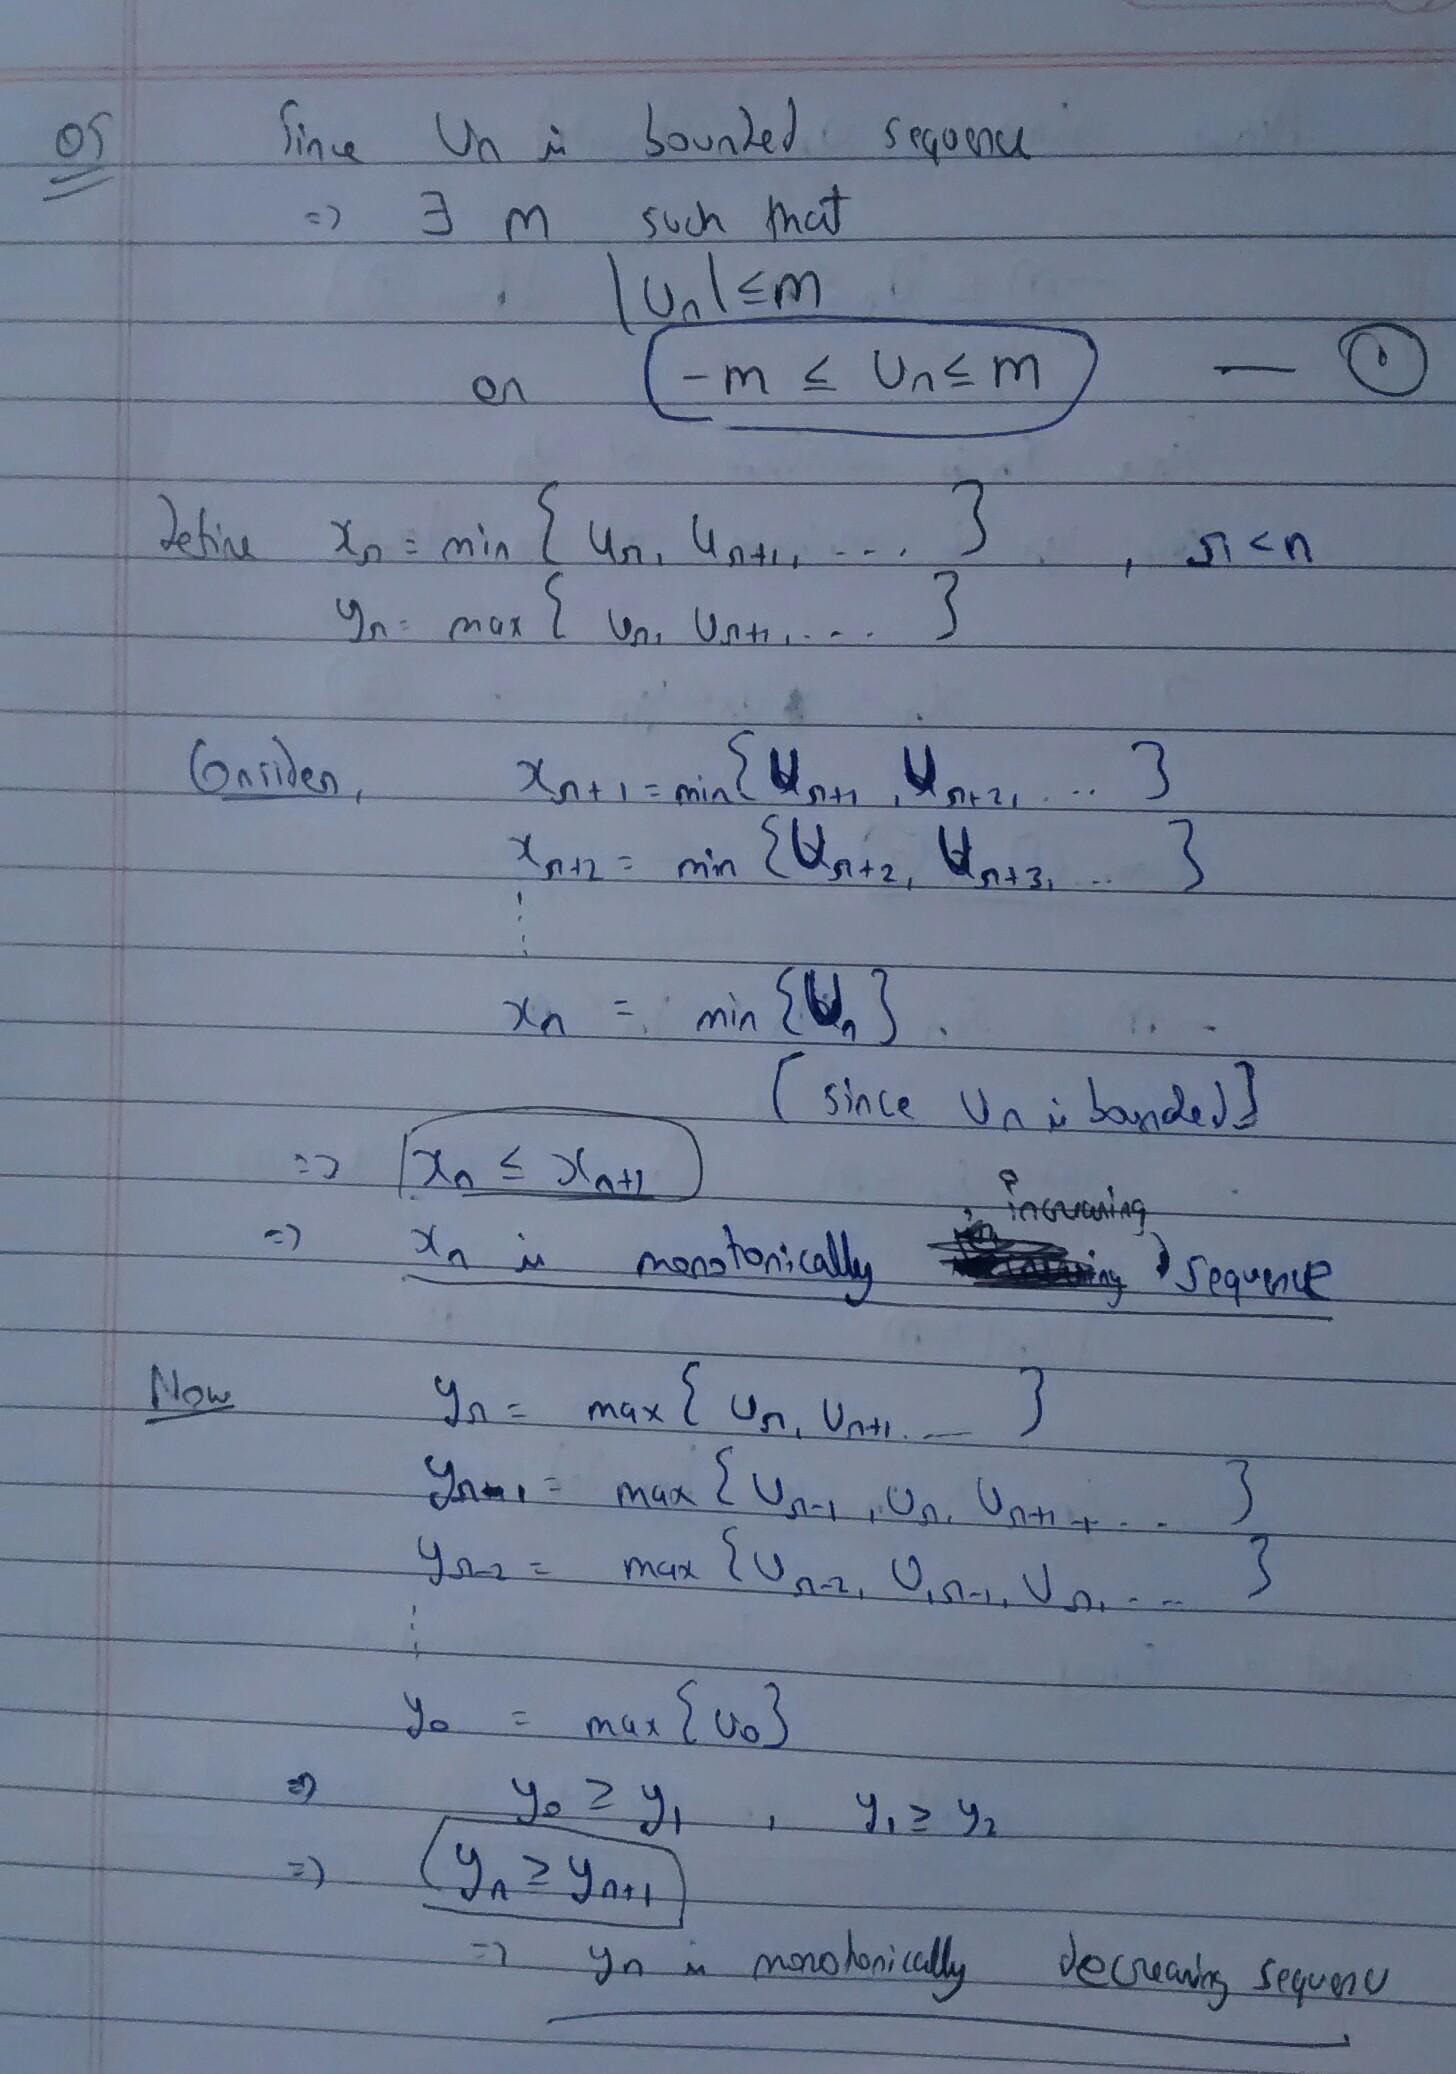 05
Since Un is bounded sequence
=> ∃ m such that
|Un| ≤ m
or -m ≤ Un ≤ m — ①
Define xr = min { ur, ur+1, ... } , r < n
yr = max { ur, ur+1, ... }
Consider, xr+1 = min { Ur+1, Ur+2, ... }
xr+2 = min { Ur+2, Ur+3, .. }
xn = min { Un }
[ since Un is bounded ]
=> xn ≤ xn+1
increasing
=> xn is monotonically sequence
Now yr = max { ur, ur+1, ... }
yr-1 = max { Ur-1, Ur, Ur+1, ... }
yr-2 = max { Ur-2, Ur-1, Ur, ... }
y0 = max { u0 }
=> y0 ≥ y1 , y1 ≥ y2
=> yn ≥ yn+1
=> yn is monotonically decreasing sequence